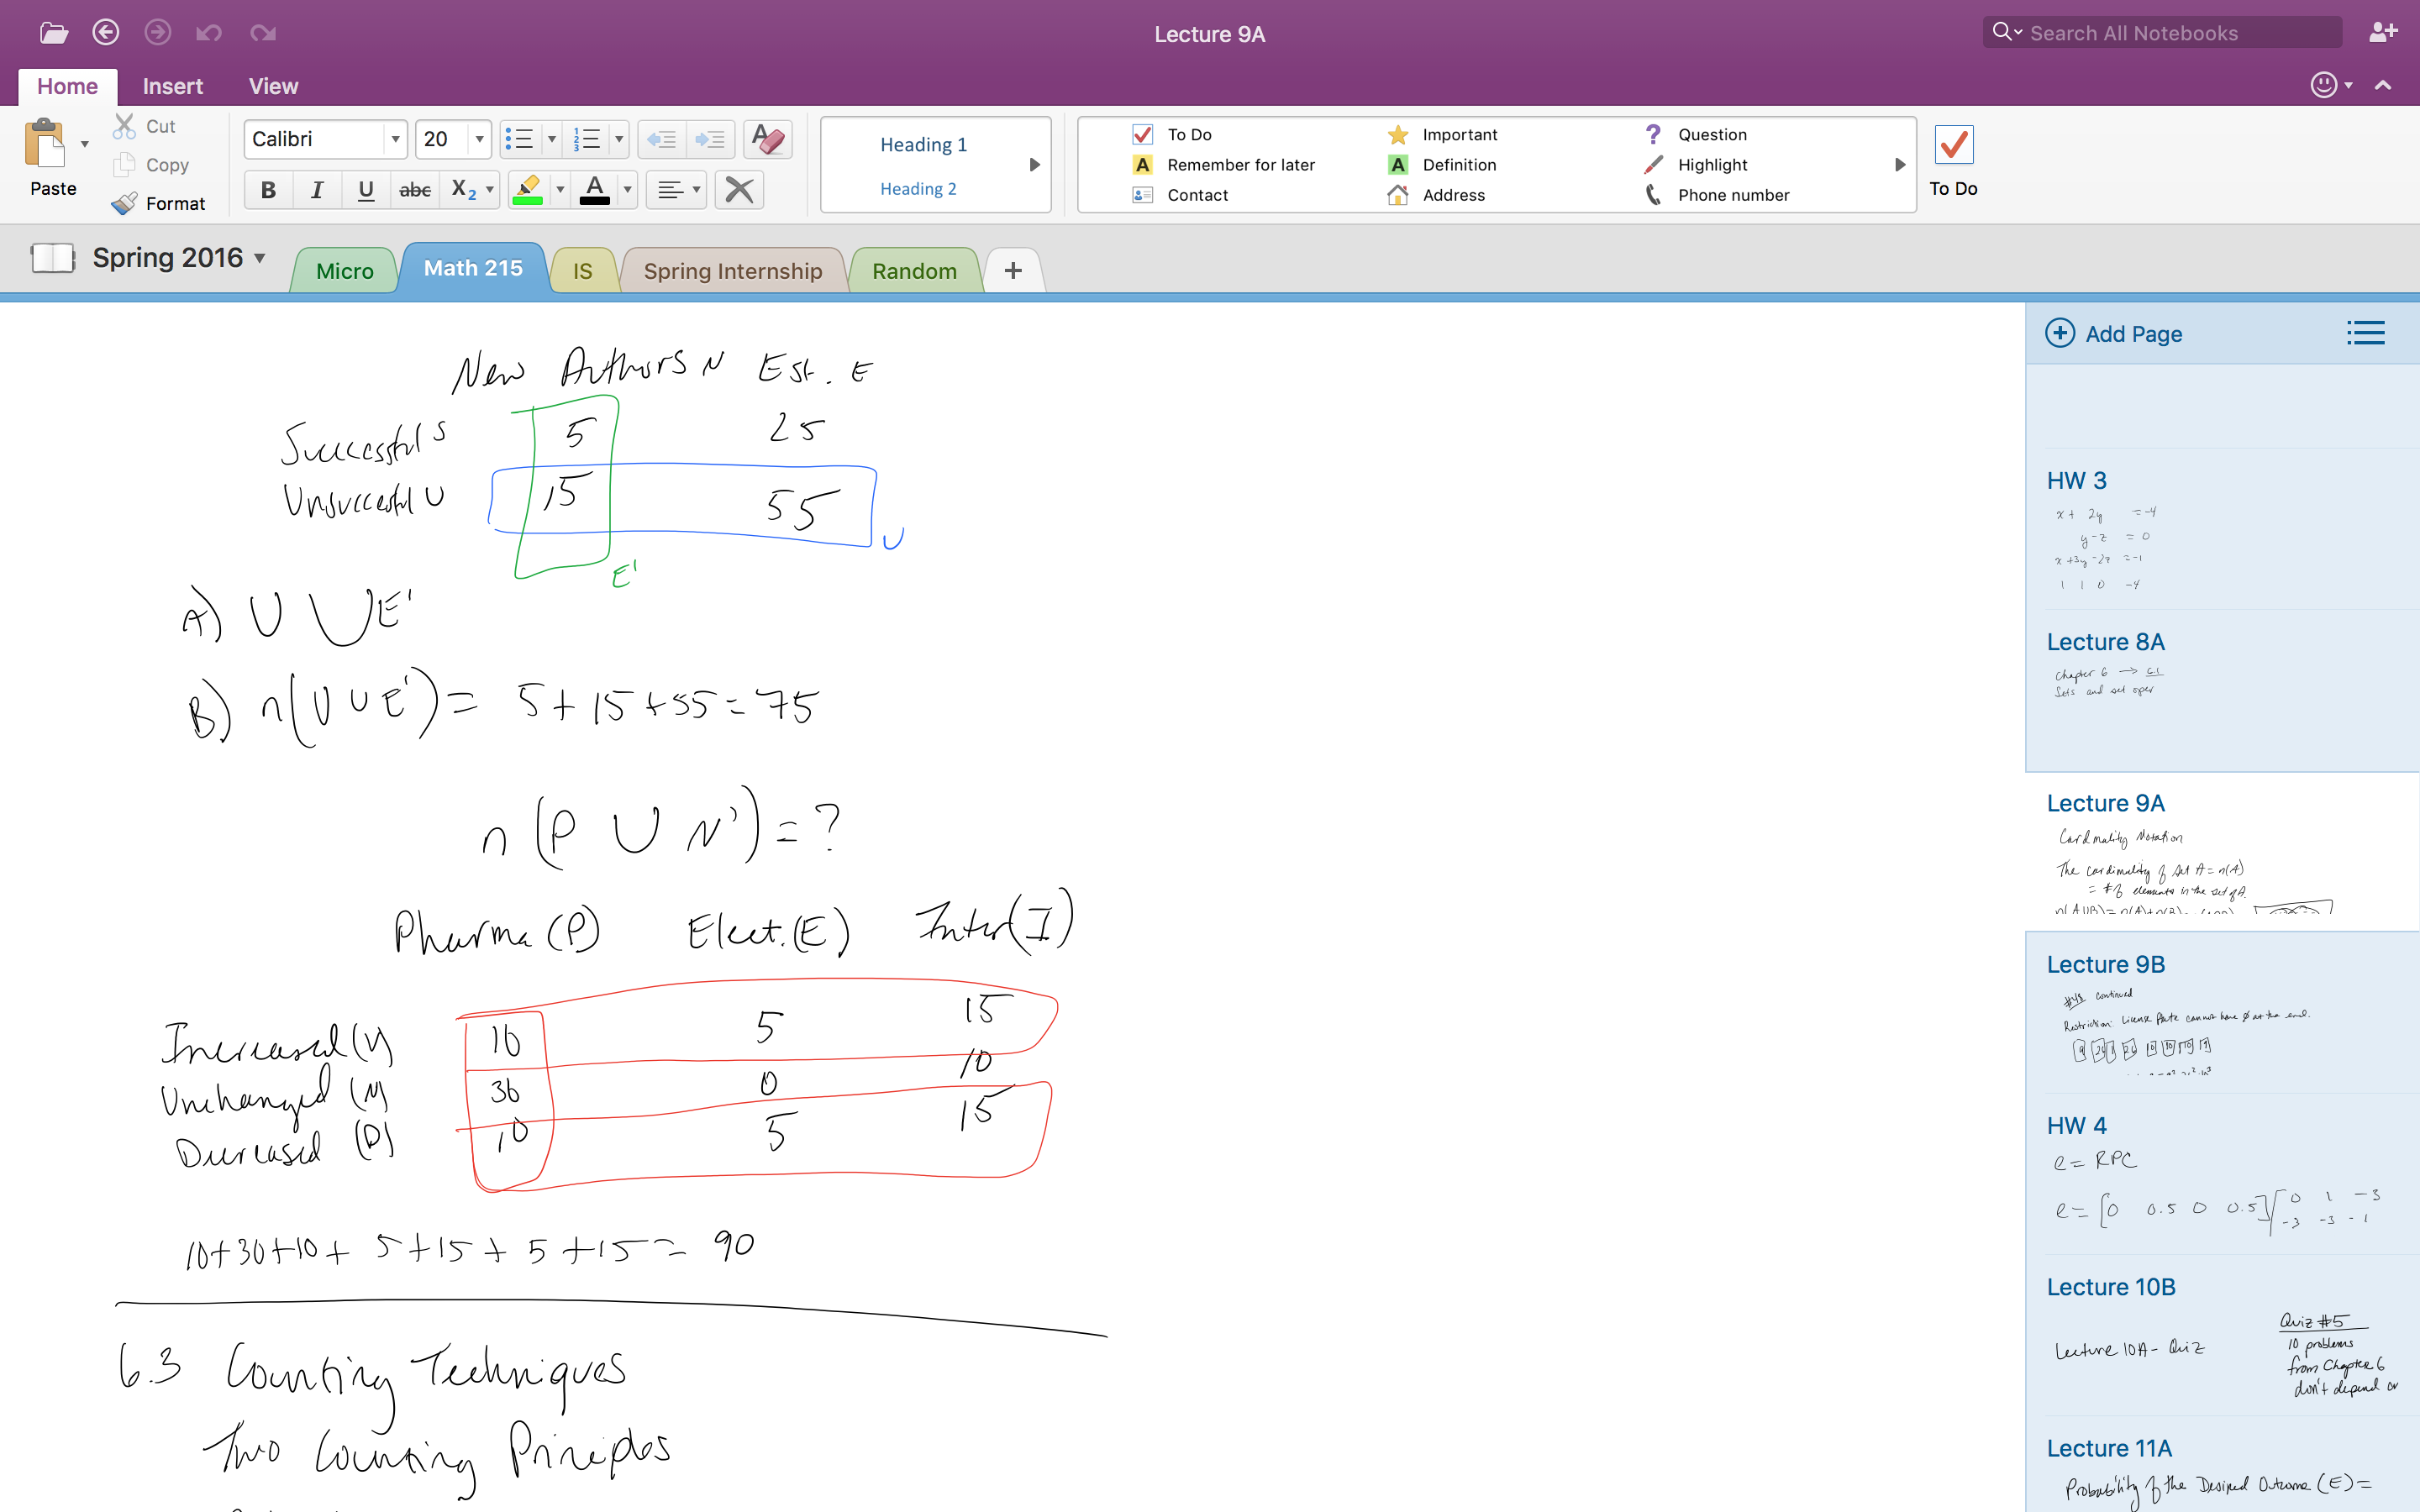 Lecture 9A
Search All Notebooks
Home Insert View
Paste
Cut
Copy
Format
Calibri 20
B I U abc X2 A
Heading 1
Heading 2
To Do Important Question
Remember for later Definition Highlight
Contact Address Phone number
To Do
Spring 2016
Micro Math 215 IS Spring Internship Random +
New Authors N Est. E
Successful S 5 25
Unsuccessful U 15 55
U
E'
A) U ∪ E'
B) n(U ∪ E') = 5+15+55=75
n(P ∪ N')=?
Pharma (P) Elect.(E) Inter(I)
Increased (V) 10 5 15
Unchanged (N) 30 0 10
Decreased (D) 10 5 15
10+30+10+ 5+15+ 5+15= 90
6.3 Counting Techniques
Two Counting Principles
Add Page
HW 3
x + 2y = -4
y - z = 0
x +3y -2z = -1
1 1 0 -4
Lecture 8A
Chapter 6 → 6.1
Sets and set oper
Lecture 9A
Cardinality Notation
The cardinality of set A = n(A)
= # of elements in the set of A.
Lecture 9B
continued
Restriction: License Plate cannot have 0 at the end.
HW 4
e = RPC
e = [0 0.5 0 0.5] [0 1 -3
-3 -3 -1
Lecture 10B
Quiz #5
Lecture 10A - Quiz
10 problems
from Chapter 6
don't depend or
Lecture 11A
Probability of the Desired Outcome (E) =